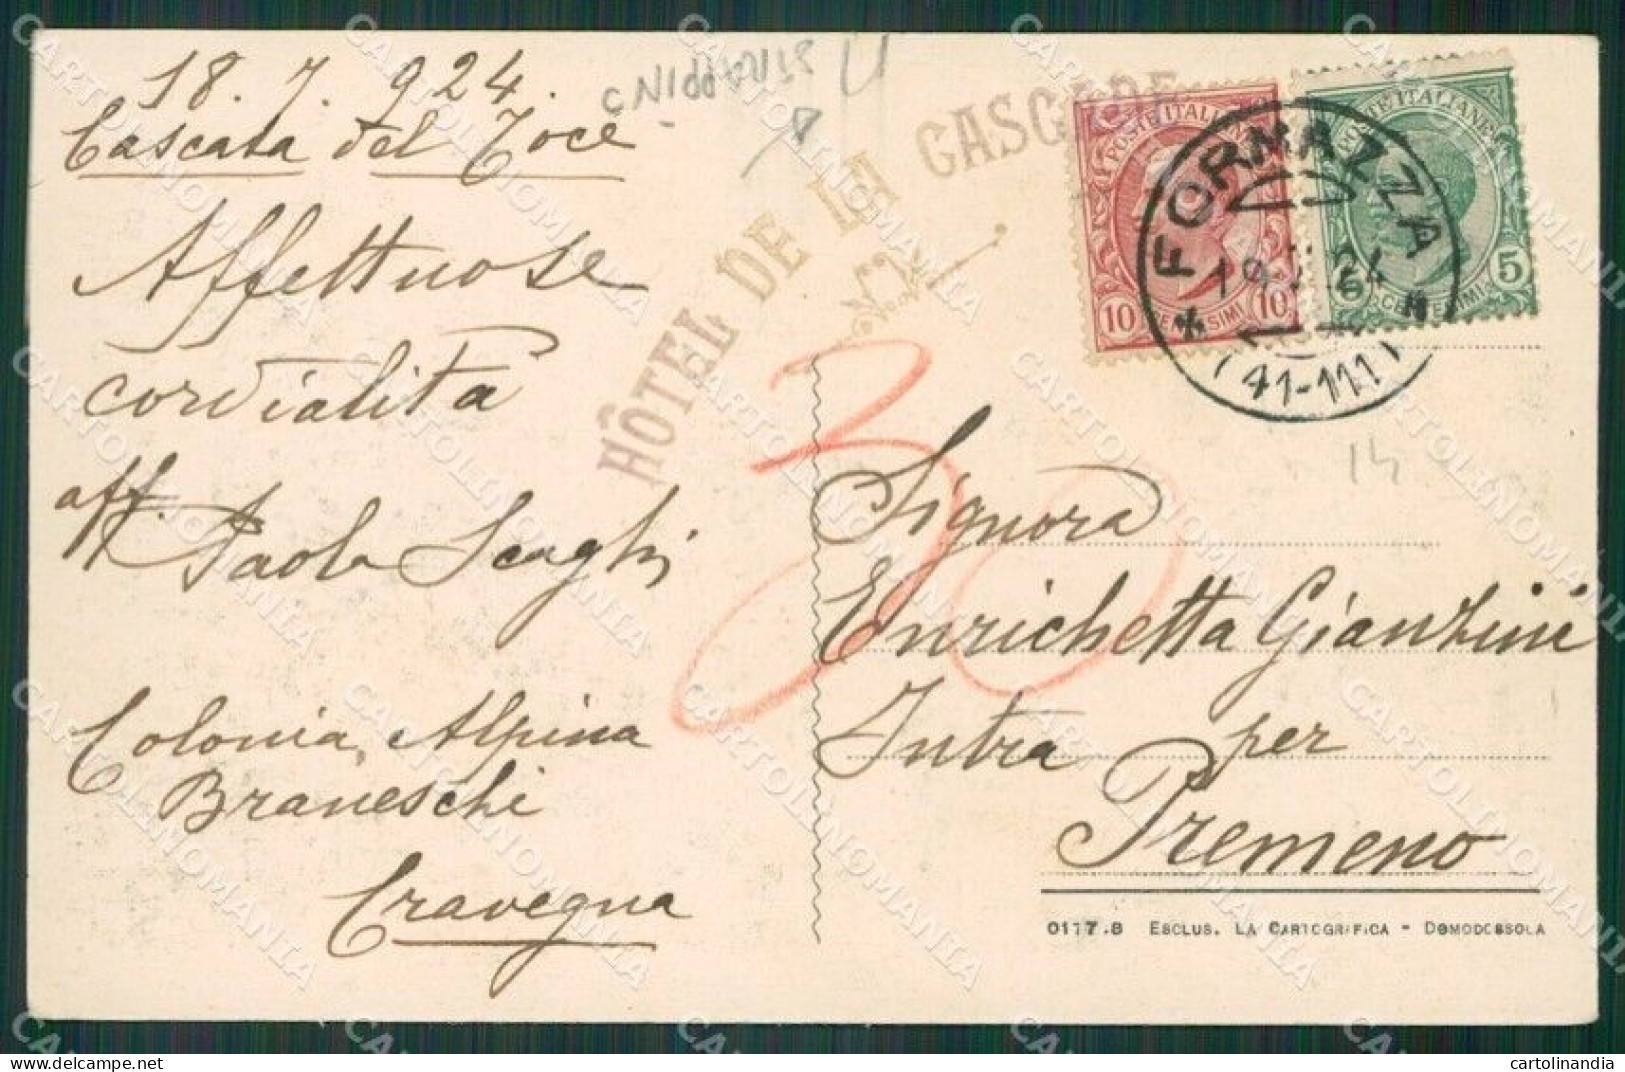 18. 7. 924.
Cascata del Toce
Affettuose
cordialità
aff.
Paola
Colonia Alpina
Braneschi
Cravegna
STRAPPINO
HÔTEL DE LA CASCADE
POSTE ITALIANE
10 CENTESIMI 10
POSTE ITALIANE
5 CENTESIMI 5
FORMAZZA
(41-111)
30
14
Signora
Enrichetta Gianzini
Intra per
Premeno
0117.B ESCLUS. LA CARTOGRAFICA - DOMODOSSOLA
CARTOLINOMANIA
cartolinandia